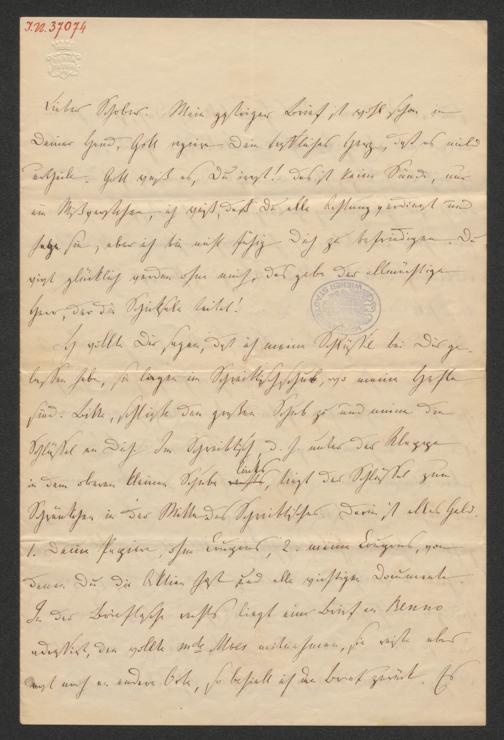 I.N. 37074
Lieber Schober. Mein gestriger Brief ist wohl schon in
Deiner Hand, Gott regiere Dein Herz, daß es mild
urtheile. Gott weiß es, Du irrst! das ist keine Sünde, nur
ein Mißverstehen, ich weiß, daß Du alle Achtung verdienst und
habe sie, aber ich bin nicht fähig Dich zu befriedigen. Du
wirst glücklich werden ohne mich, das gebe der allmächtige
Herr, der die Schicksale leitet!
Ich wollte Dir sagen, daß ich meine Schlüssel bei Dir ge-
lassen habe, sie liegen im Schreibtischschub, wo meine Hefte
sind. Bitte, schließe den großen Schub zu und nimm die
Schlüssel an Dich. Im Schreibtisch d. h. unter der Klappe
in dem oberen kleinen Schube links, liegt der Schlüssel zum
Schränkchen in der Mitte des Schreibtisches, darin ist alles Geld.
1. Deine Papiere, ohne Coupons, 2. meine Coupons, von
denen Du die Aktien hast und alle wichtigen Documente.
In der Brieftasche rechts liegt ein Brief an Benno
adressirt, den wollte mde Moes mitnehmen, sie reiste aber
erst noch an andere Orte, so behielt ich den Brief zurück. Es